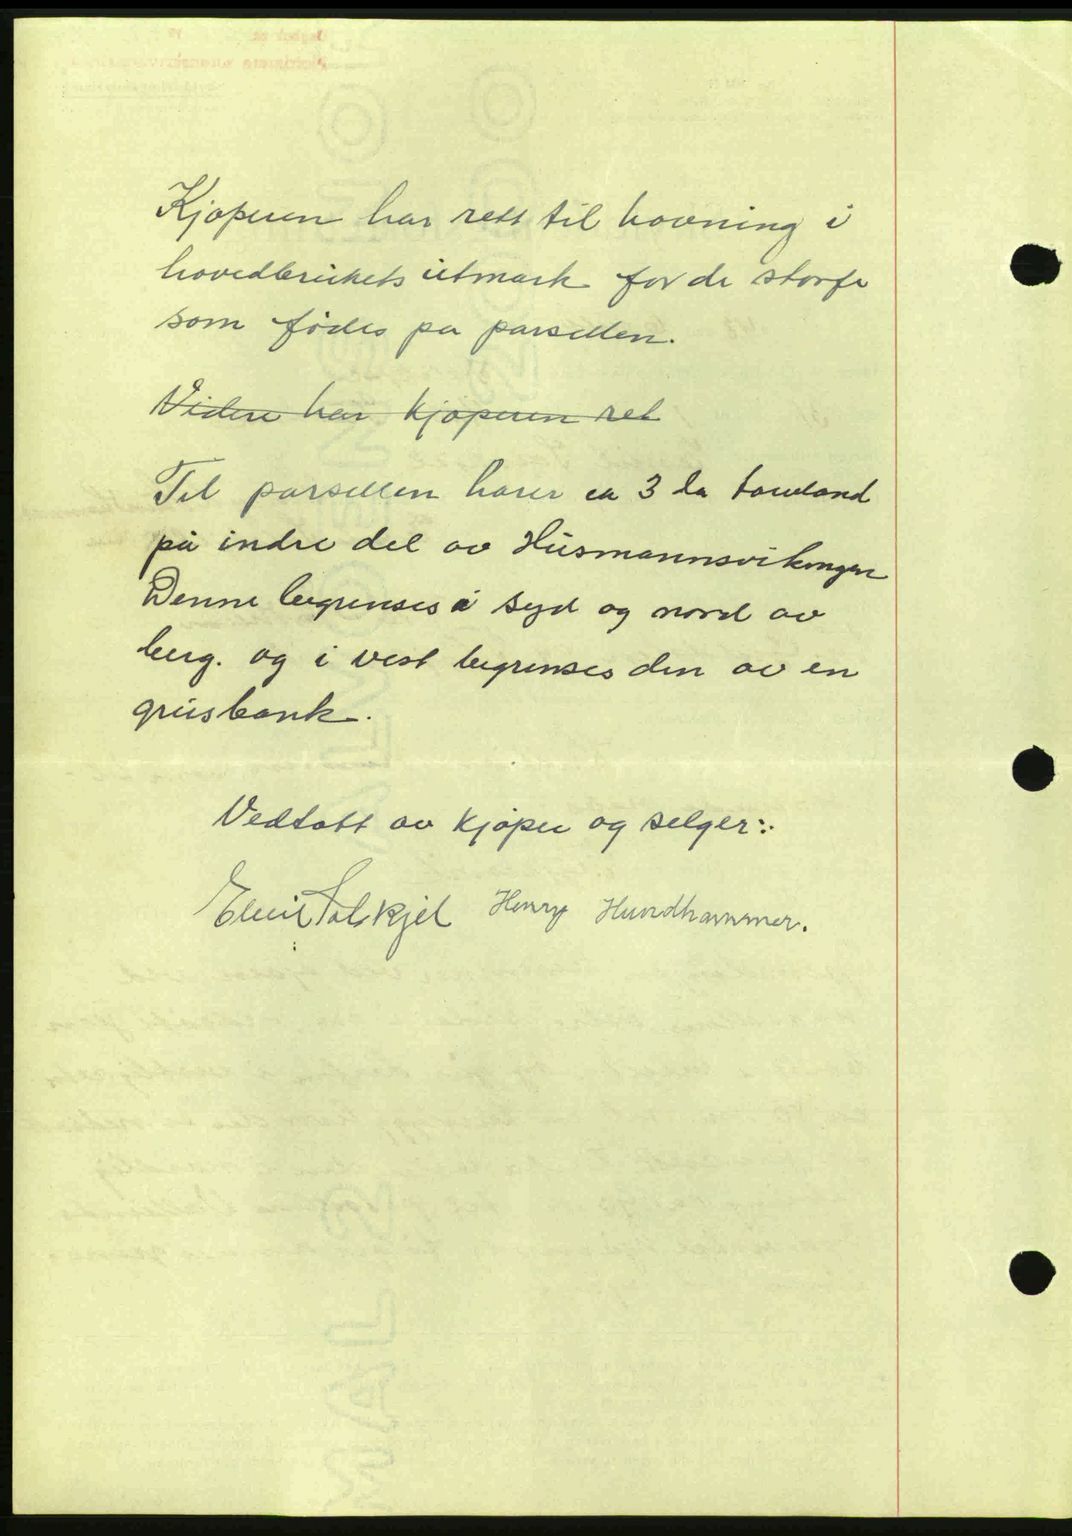 Kjøperen har rett til havning i
hovedbrukets utmark for de storfe
som fødes på parsellen.
Videre har kjøperen ret
Til parsellen hører ca 3 da tareland
på indre del av Husmannsvikengen
Denne begrenses i syd og nord av
berg. og i vest begrenses den av en
grusbank.
Vedtatt av kjøper og selger:
Emil Solskjel Henry Hundhammer.